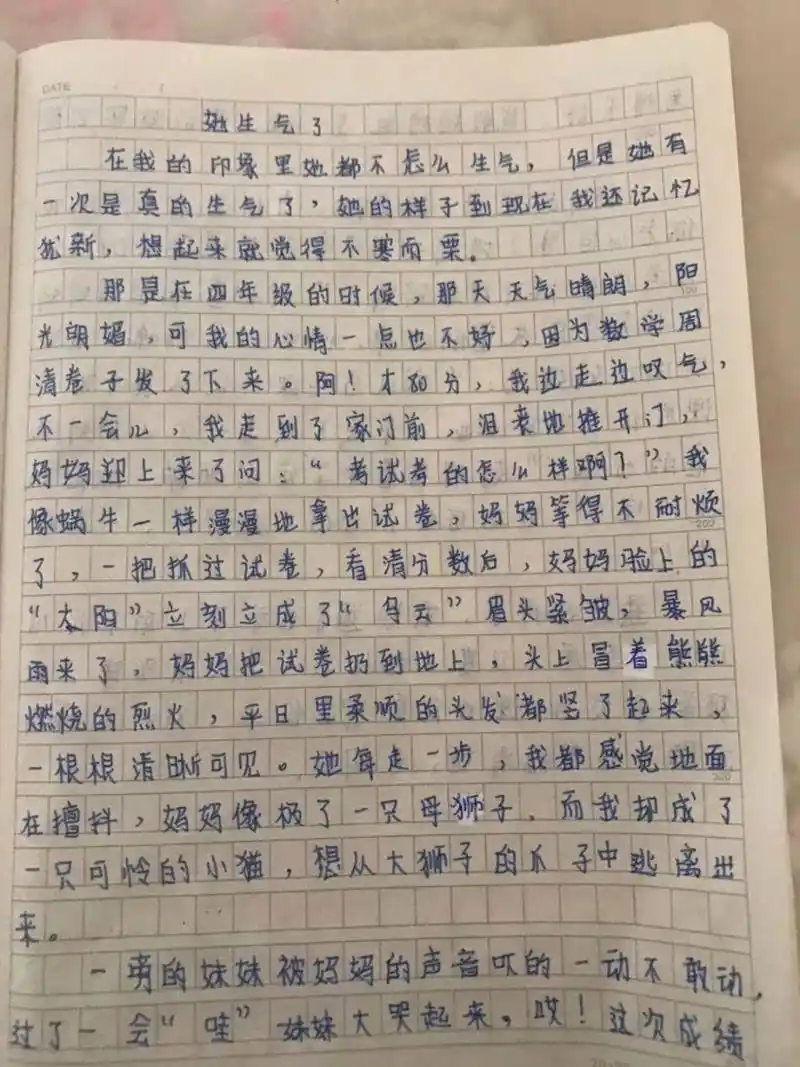 DATE
她生气了
在我的印象里她都不怎么生气，但是她有
一次是真的生气了，她的样子到现在我还记忆
犹新，想起来就觉得不寒而栗。
那是在四年级的时候，那天天气晴朗，阳
光明媚，可我的心情一点也不好，因为数学周
清卷子发了下来。阿！才80分，我边走边叹气，
不一会儿，我走到了家门前，沮丧地推开门，
妈妈迎上来了问：“考试考的怎么样啊？”我
像蜗牛一样漫漫地拿出试卷，妈妈等得不耐烦
了，一把抓过试卷，看清分数后，妈妈验上的
“太阳”立刻立成了“乌云”眉头紧皱，暴风
雨来了，妈妈把试卷扔到地上，头上冒着熊熊
燃烧的烈火，平日里柔顺的头发都竖了起来，
一根根清晰可见。她每走一步，我都感觉地面
在擅抖，妈妈像极了一只母狮子，而我却成了
一只可怜的小猫，想从大狮子的爪子中逃离出
来。
一旁的妹妹被妈妈的声音吓的一动不敢动，
过了一会“哇”妹妹大哭起来，哎！这次成绩